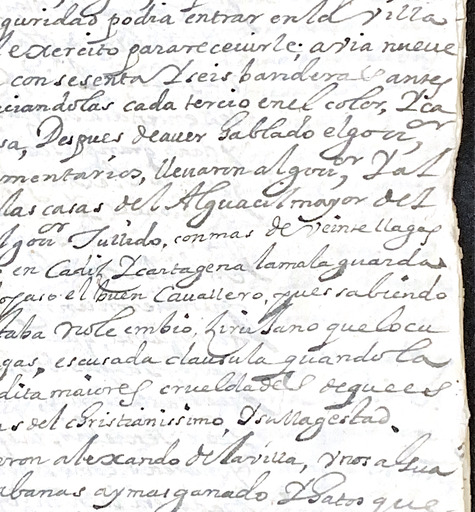 guridad podia entrar en la villa
l exercito para receuirle; avia nueve
con sesenta Y seis banderas antes
ciandolas cada tercio en el color, Y ca
sa, Despues de aver hablado el gor,
mentarios, llevaron al gor, Y al
las casas del Alguacil mayor del
gor Tullido, con mas de veinte llagas
en Cadiz Y cartagena la mala guarda
paso el buen Cavallero, pues sabiendo
taba No le embio Ziru Jano que lo cu
gas, escusada clausula quando la
dita maiores crueldades de que es
as del christianissimo, Y su Magestad.
eron alexando de la villa, Y nos a lua
abanas ay mas ganado Y hatos que